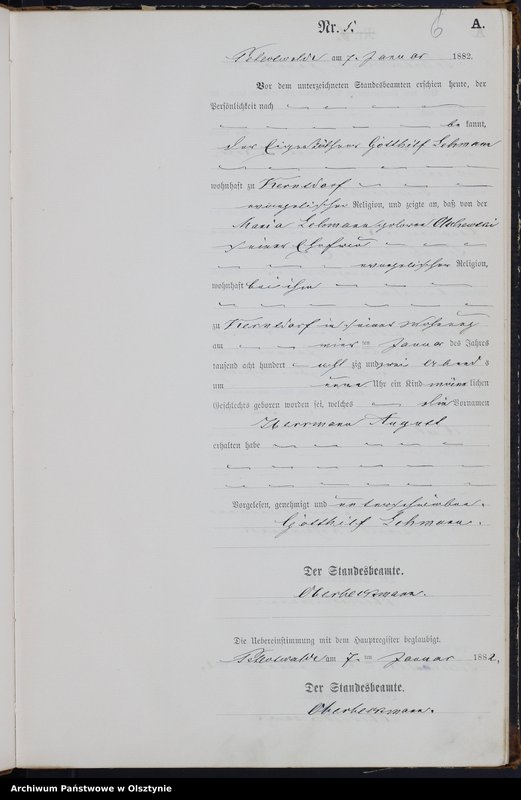 Nr. 5. 6 A.
am 7. Januar 1882.
Vor dem unterzeichneten Standesbeamten erschien heute, der
Persönlichkeit nach
be kannt,
der Eigenkäthner Gotthilf Lehmann
wohnhaft zu Kernsdorf
evangelischer Religion, und zeigte an, daß von der
Maria Lehmann geborene Olschewski
seiner Ehefrau
evangelischer Religion,
wohnhaft bei ihm
zu Kernsdorf in seiner Wohnung
am vier ten Januar des Jahres
tausend acht hundert acht zig und zwei Abend s
um neun Uhr ein Kind männ lichen
Geschlechts geboren worden sei, welches die Vornamen
Herrmann August
erhalten habe
Vorgelesen, genehmigt und unterschrieben.
Gotthilf Lehmann.
Der Standesbeamte.
Die Uebereinstimmung mit dem Hauptregister beglaubigt.
am 7. ten Januar 1882.
Der Standesbeamte.
Archiwum Państwowe w Olsztynie